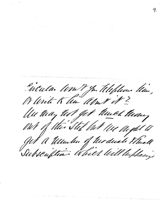 Circular won't you telephone him,
or write to him about it?
We may not get much money
out of this still but we ought to
get a number of moderate & small
Subscriptions which will help